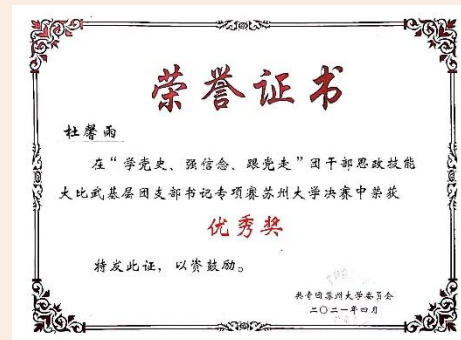 荣誉证书
杜馨雨
在“学党史、强信念、跟党走”团干部思政技能
大比武基层团支部书记专项赛苏州大学决赛中荣获
优秀奖
特发此证，以资鼓励。
共青团苏州大学委员会
二〇二一年四月